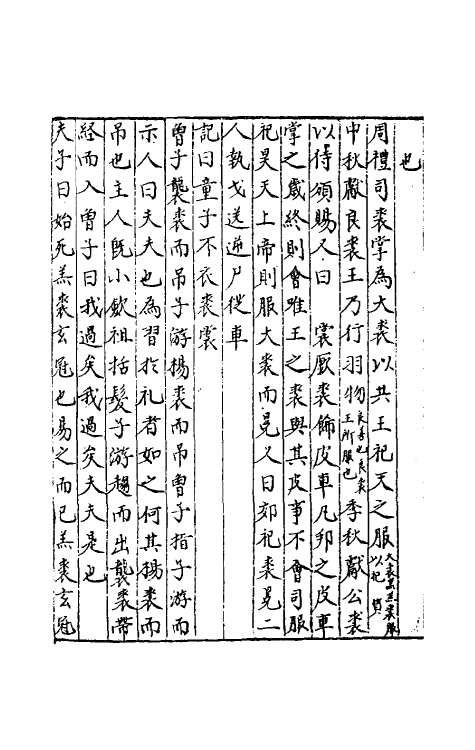 也
周禮司裘掌為大裘以共王祀天之服大裘黑羔裘服以祀質
中秋獻良裘王乃行羽物良善也良裘王所服也季秋獻公裘
以待頒賜又曰 裳厫裘飾皮車凡邦之皮車
掌之歲終則會唯王之裘與其皮事不會司服
祀昊天上帝則服大裘而冕又曰郊祀裘冕二
人執戈送逆尸從車
記曰童子不衣裘裳
曾子襲裘而吊子游裼裘而吊曾子指子游而
示人曰夫夫也為習扵礼者如之何其裼裘而
吊也主人既小歛袒括髮子游趨而出襲裘帶
絰而入曾子曰我過矣我過矣夫夫是也
夫子曰始死羔裘玄冠也易之而已羔裘玄冠